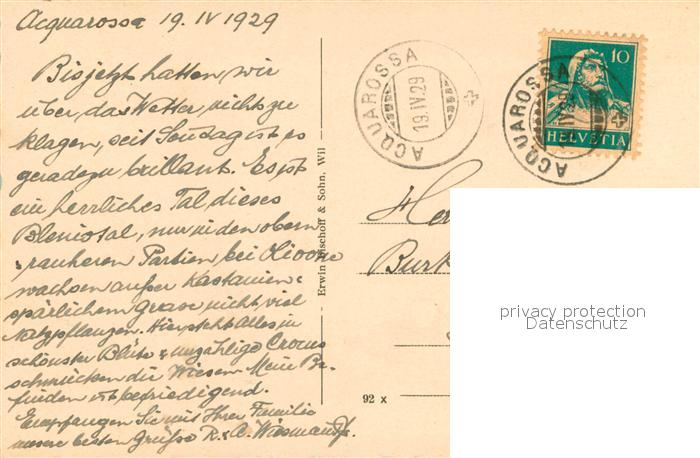 Acquarossa 19. IV 1929
Bis jetzt hatten, wir
über, das Wetter, nichts zu
klagen, seit Sonntag ist es
geradezu brillant. Es ist
ein herrliches Tal, dieses
Bleniotal, nur in den obern
rauheren Partien, bei Olivone
wachsen außer Kastanien &
spärlichem Grase nicht viel
Nutzpflanzen. Hier steht Alles in
schönster Blüte & unzählige Crocus
schmücken die Wiesen. Mein Be-
finden ist befriedigend.
Empfangen Sie mit Ihrer Familie
unsere besten Grüße R. & A. Wiesmann
Erwin Bischoff & Sohn, Wil
ACQUAROSSA
19.IV.29
10
HELVETIA
ACQUAROSSA
Her
Burk
92 x
privacy protection
Datenschutz